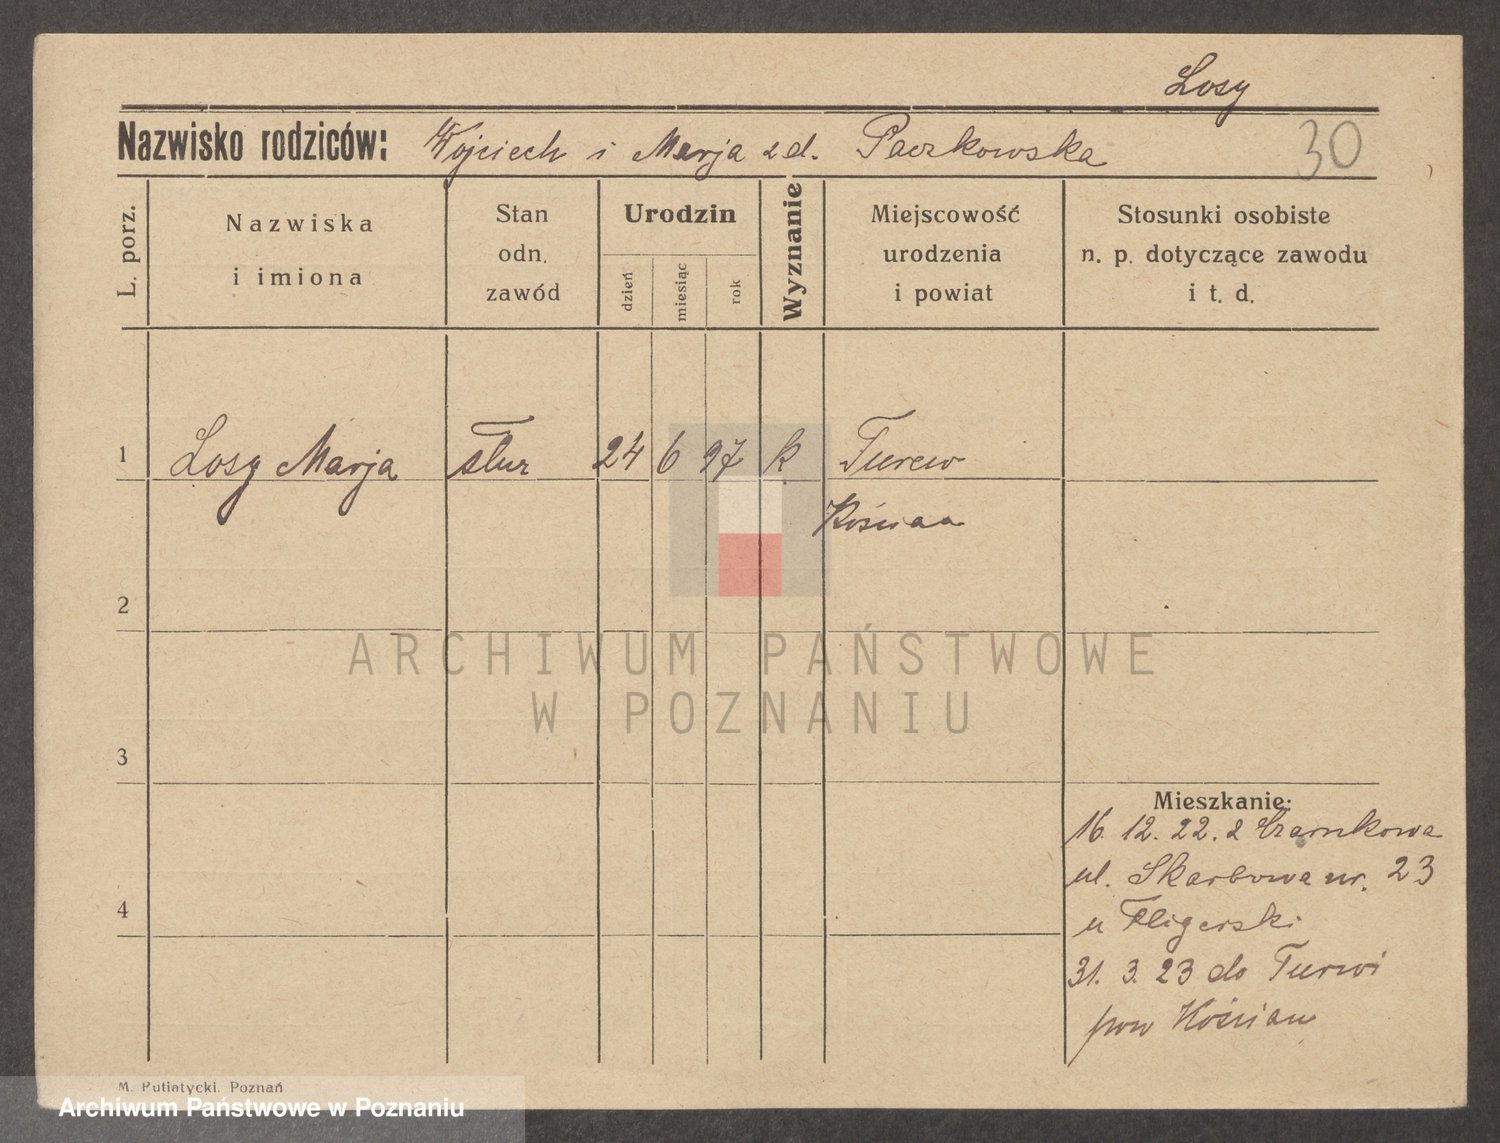 Losy
Nazwisko rodziców: Wojciech i Marja z d. Paczkowska 30
L. porz.
Nazwiska
i imiona
Stan
odn.
zawód
Urodzin
dzień
miesiąc
rok
Wyznanie
Miejscowość
urodzenia
i powiat
Stosunki osobiste
n. p. dotyczące zawodu
i t. d.
1 Losy Marja służ 24 6 97 k Turew
Kościan
2
ARCHIWUM PAŃSTWOWE
W POZNANIU
3
Mieszkanie:
16. 12. 22. z Czarnkowa
ul. Skarbowa nr. 23
4
u Fligerski
31. 3. 23 do Turwi
pow Kościan
M. Putiatycki, Poznań
Archiwum Państwowe w Poznaniu